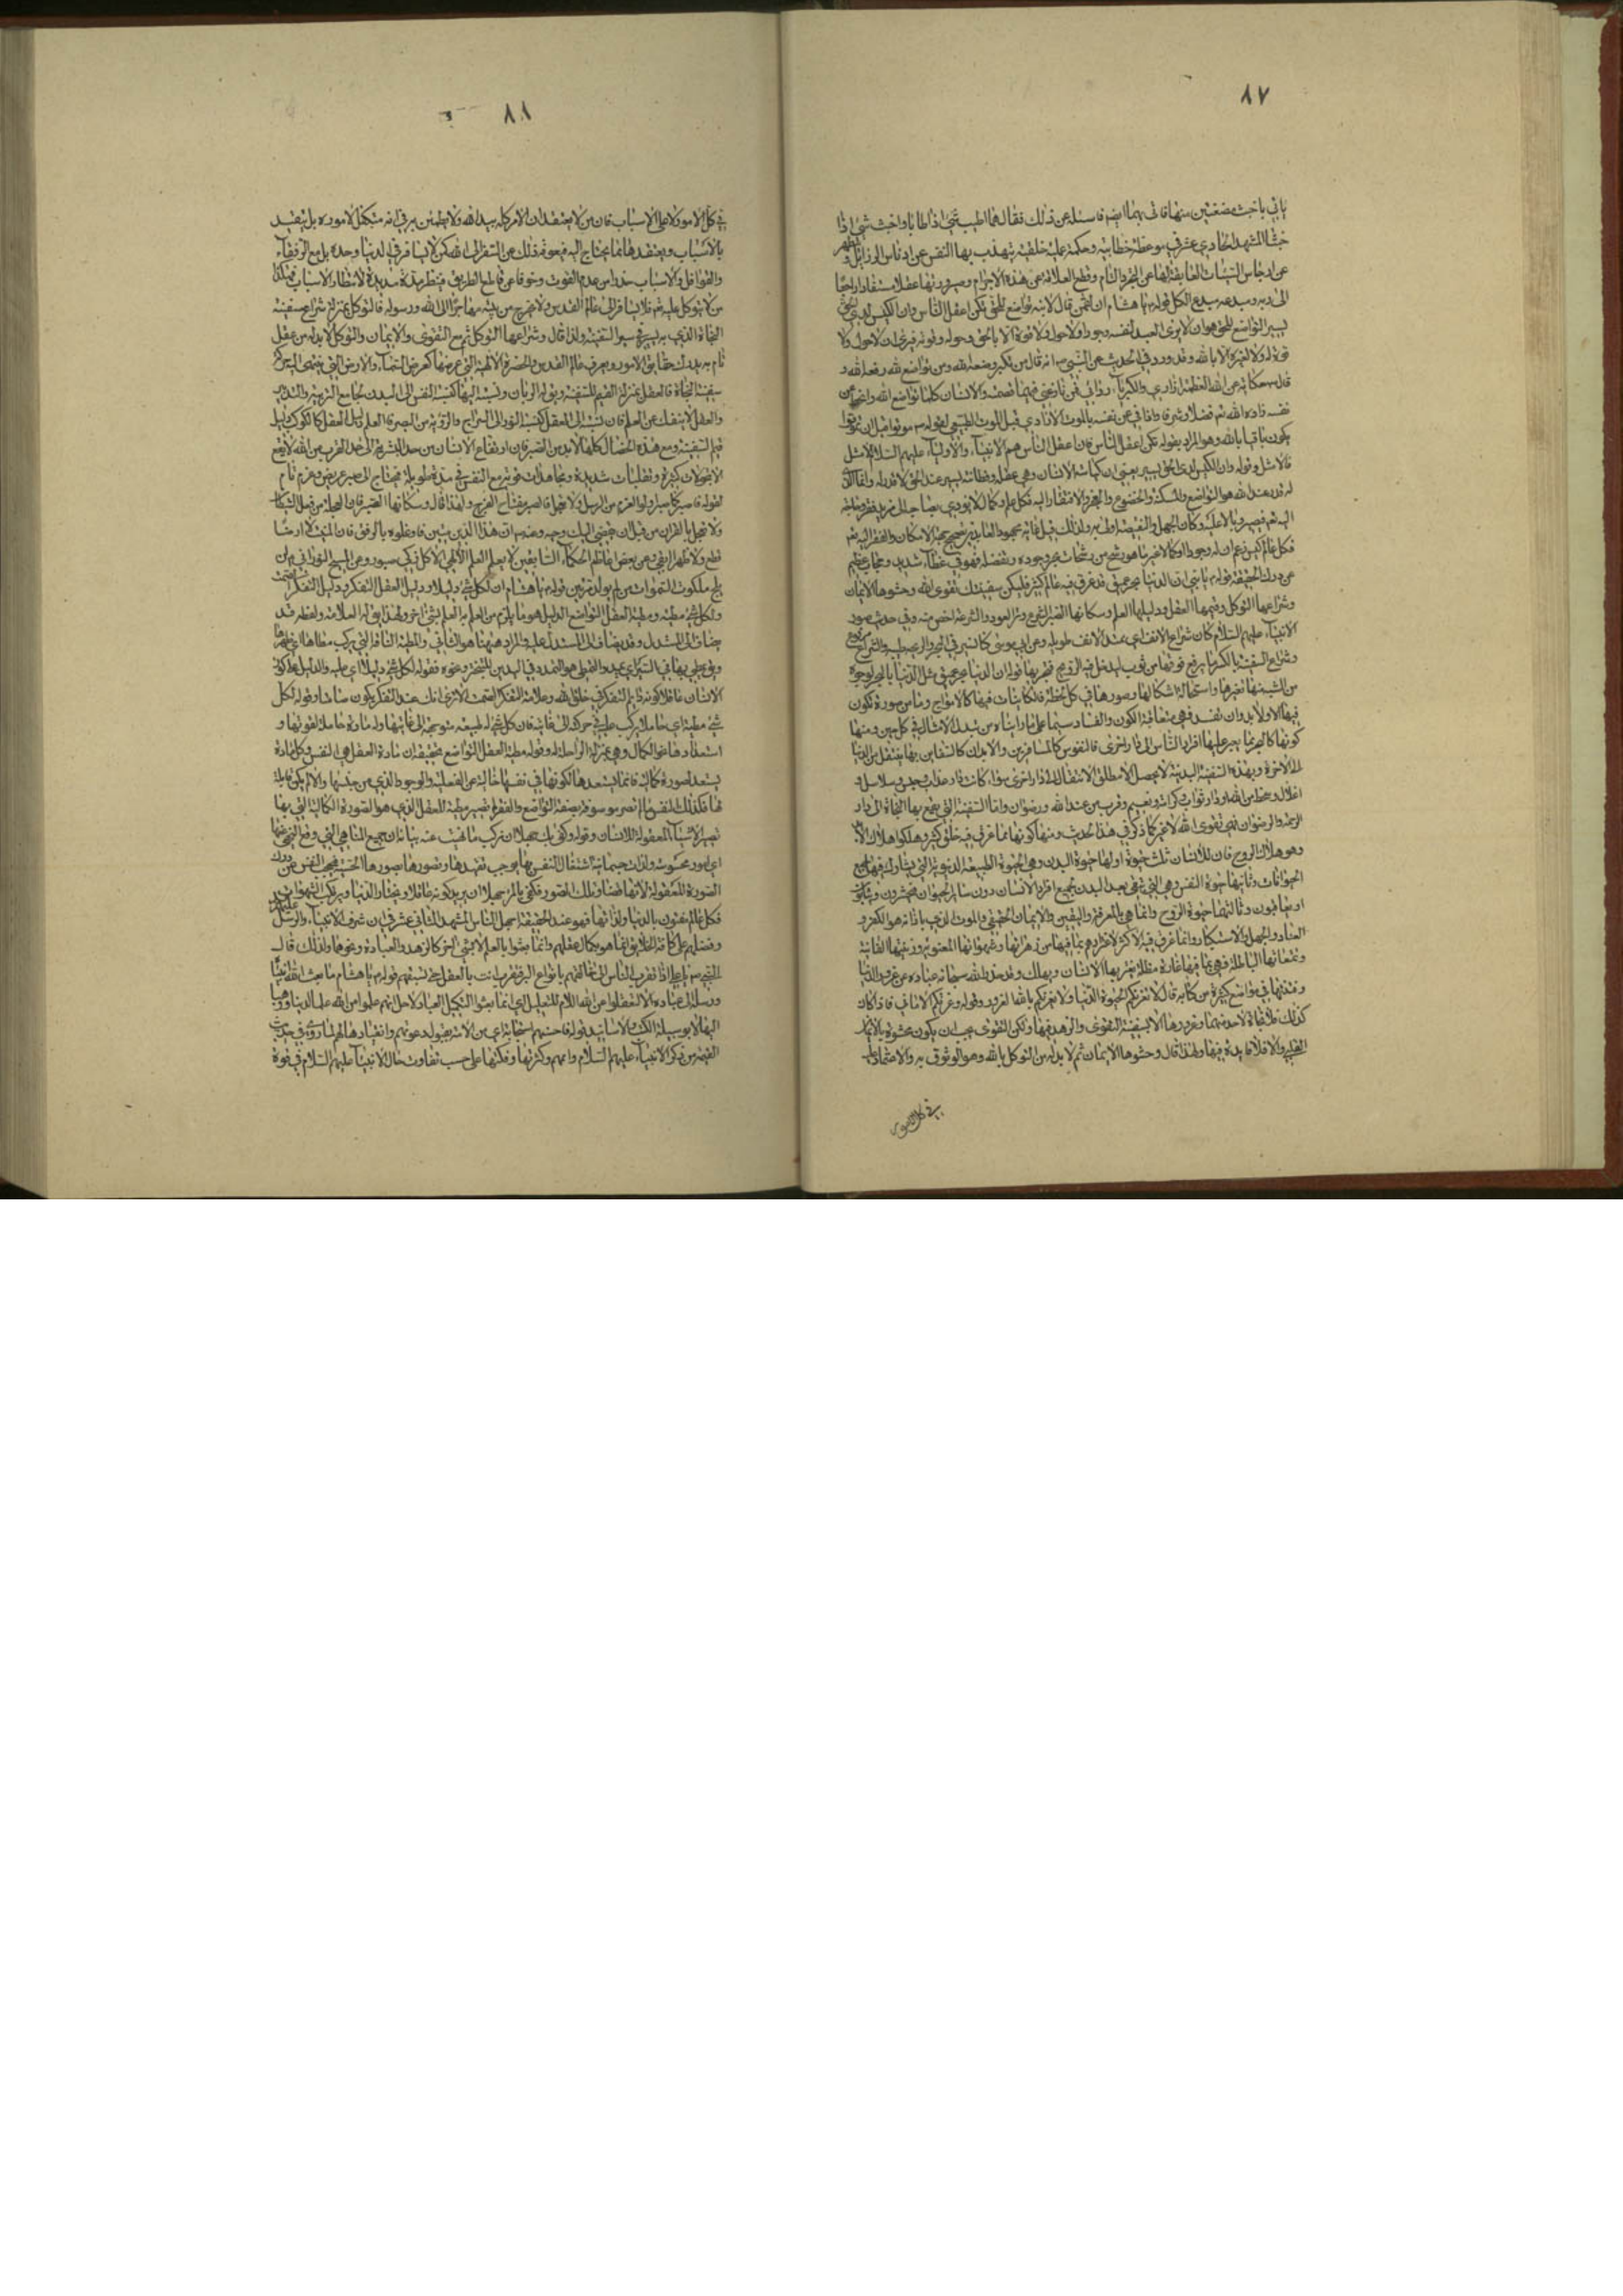 ٨٧
یاتی باخبث مضغتین منها فاتى بهما ایضا فاسئله عن ذلک فقال هما اطیب شیء اذا طابا واخبث شیء اذا
خبثا المشهد الحادي عشر في موعظة خطابیة وحکمة عملیة خلقیة یتهذب بها النفس عن ادناس الرذائل و
عن ادناس التعلقات العایقة لها عن التجرد التام وقطع العلاقة عن هذه الاجرام وصیرورتها عقلا مستفادا راجعا
الى ربه ومبدعه مبدع الکل قوله یا هشام ان لقمن قال لابنه تواضع للحق تکن اعقل الناس وان الکیس لدى الحق
یسیر التواضع للحق هو ان لا یرى العبد لنفسه وجودا ولا حولا ولا قوة الا بالحق وحوله وقوته فیرى ان لا حول ولا
قوة له ولا لغیره الا بالله وقد ورد في الحدیث عن النبي ص انه قال من تکبر وضعه الله ومن تواضع لله رفعه الله و
قال حکایة عن الله العظمة ازاري والکبریاء ردائي فمن نازعني فیهما قصمته والانسان کلما تواضع لله وافنى عن
نفسه زاده الله فضلا وشرفا واذا فني عن نفسه بالموت الارادي قبل الموت الطبیعي لقوله ص موتوا قبل ان تموتوا
یکون باقیا بالله وهو المراد بقوله تکن اعقل الناس فان اعقل الناس هم الانبیاء والاولیاء علیهم السلام ثم الامثل
فالامثل وقوله وان الکیس لدى الحق یسیر یعنى ان کیاسة الانسان وهي عقله وفطانته یسیر عند الحق لا قدر له وانما الذي
له قدر عند الله هو التواضع والمسکنة والخضوع والعجز والافتقار الیه فکل علم وکمال لا یؤدي بصاحبه الى مزید فقر وحاجة
الیه تعم یصیر وبالا علیه وکان الجهل والنقیصة اولى به ولذلک قیل غایة مجهود العابدین تصحیح جهة الامکان والفقر الیه تعم
فکل عالم کیس زعم ان له وجودا او کمالا غیر ما هو رشح من رشحات بحر وجوده وتفضله فهو في غطاء شدید وحجاب عظیم
عن درک الحقیقة قوله یا بني ان الدنیا بحر عمیق قد غرق فیه عالم کثیر فلیکن سفینتک تقوى الله وحشوها الایمان
وشراعها التوکل وقیمها العقل ودلیلها العلم وسکانها الصبر
الانبیاء علیهم السلام کان شراع الانف اي یمتد الانف طویله
وشراع السفینة بالکسر ما یرفع فوقها من ثوب لیدخل فیه الریح فیجریها قوله ان الدنیا بحر عمیق مثل الدنیا بالبحر لوجوه
من الشبه منها تغیرها واستحالة اشکالها وصورها في کل لحظة فالکاینات فیها کالامواج وما من صورة تکون
فیها الا ولا بد وان تفسد فهي متعاقبة الکون والفساد سیما على ما راینا من تبدل الامثال في کل حین ومنها
کونها کالبحر مما یعبر علیها افراد الناس الى دار اخرى فالنفوس کالمسافرین والابدان کالسفاین بها ینتقل من الدنیا
الى الاخرة وبهذه السفینة البدنیة لا یحصل الا مطلق الانتقال الى دار اخرى سواء کانت دار عذاب وجحیم وسلاسل و
اغلال وسخط من الله او دار ثواب وکرامة ونعیم وقرب من عند الله ورضوان واما السفینة التي یقع بها النجاة الى دار
الرحمة والرضوان فهي تقوى الله لا غیر کما ذکر في هذا الحدیث ومنها کونها مما غرق فیه خلق کثیر وهلکوا هلاک الابد
وهو هلاک الروح فان للانسان ثلث حیوة اولها حیوة البدن وهي الحیوة الطبیعیة الدنیویة التي یشارکه فیها جمیع
الحیوانات وثانیها حیوة النفس وهي التي تبقى بعد البدن لجمیع افراد الانسان دون سایر الحیوان فیحشرون
او یعاقبون وثالثها حیوة الروح وانما هي بالمعرفة والیقین والایمان الحقیقي والموت الذي بازائه هو الکفر و
العناد والجهل والاستکبار وانما غرق فیه الاکثر لاغترارهم بما فیها من زهراتها وشهواتها
وتمتعاتها الباطلة فهي بما فیها غارة مظلة یغتر بها الانسان ویهلک وقد حذر الله سبحانه عباده عن غرور الدنیا
وفتنتها في مواضع کثیرة من کتابه قال لا تغرنکم الحیوة الدنیا ولا یغرنکم بالله الغرور وقوله وغرتکم الاماني فاذا کان
کذلک فلا نجاة لاحد منها ومن غرورها الا بسفینة التقوى والزهد فیها ولکن التقوى یجب ان یکون محشوة بالایمان
القلبي والا فلا فایدة فیها ولهذا قال وحشوها الایمان ثم لا بد له من التوکل بالله وهو الوثوق به والاعتماد علیه
في کل الامور
٨٨
في کل الامور لا على الاسباب فان من لا یعتقد ان الامر کله بید الله ولا یطمئن سره في انه متکفل لاموره بل یتقید
بالاسباب ویعتقدها مما یحتاج الیه فیعوقه ذلک عن السفر الى الله کمن لا یسافر في الدنیا وحده بل مع الرفقاء
والقوافل والاسباب حذرا من عدم القوت وخوفا عن قاطع الطریق فینتظر مدة مدیدة لانتظار الاسباب فهکذا
من لا یتوکل علیه تعم فلا یسافر الى عالم القدس ولا یخرج من بیته مهاجرا الى الله ورسوله فالتوکل بمنزلة شراع سفینة
النجاة الذي به یسیر في سیر السفینة ولذا قال وشراعها التوکل ثم مع التقوى والایمان والتوکل لا بد له من عقل
تام به یدرک حقایق الامور ویعرف عالم القدس والحضرة الالهیة التي عرضها کعرض السماء والارض
سفینة النجاة فالعقل بمنزلة القیم للسفینة ویق له الربان ونسبته الیها کنسبة النفس الى البدن بجامع التربیة والتدبیر
والعقل لا ینفک عن العلم فان نسبته الى العقل کنسبة النور الى السراج والرؤیة من البصر فالعلم دلیل العقل کالکوکب لدلیل
قیم السفینة ومع هذه الخصال کلها لا بد من الصبر فان ارتفاع الانسان من حد البشریة الى حد القرب من الله لا یقع
الا بتحولات کثیرة وتقلبات شدیدة ومجاهدات قویة مع النفس في مدة طویلة یحتاج الى صبر عریض وعزم تام
لقوله فاصبر کما صبر اولوا العزم من الرسل ولا تعجل فالصبر مفتاح الفرج ولهذا قال وسکانها الصبر فان العجلة من فعل الشیطان
ولا تعجل بالقران من قبل ان یقضى الیک وحیه وعنه ص ان هذا الدین متین فاوغلوه بالرفق فان المنبت لا ارضا
قطع ولا ظهرا ابقى وعن بعض اعاظم الحکماء السابقین لا یعلم العلم الالهي الا کل ذکي صبور وعن المسیح النوراني لن
یلج ملکوت السموات من لم یولد مرتین قوله یا هشام ان لکل شيء دلیلا ودلیل العقل التفکر ودلیل التفکر الصمت
ولکل شيء مطیة ومطیة العقل التواضع الدلیل هو ما یلزم من العلم به العلم بشیء اخر ولهذا یق له العلامة ولفظه قد
یضاف الى المستدل وقد یضاف الى المستدل علیه والمراد ههنا هو الثاني والمطیة الناقة التي یرکب مطاها اي ظهرها
الانسان عاقلا کونه دائم التفکر في خلق الله وعلامة المتفکر الصمت الا ترى انک عند التفکر یکون صامتا وقوله لکل
شيء مطیة اي حاملا یرکب علیه في حرکته الى غایته فان کل شیء له طبیعة متوجهة الى غایتها وله مادة حاملة لقوتها و
استعدادها نحو الکمال وهي بمنزلة الراحلة له وقوله مطیة العقل التواضع تحقیقه ان مادة العقل هي النفس وکل مادة
یستعد لصورة کمالیة فانما یستعدها لکونها في نفسها خالیة عن الفعلیة والوجود الذي من جنسها والا لم یکن قابلة
لها فکذلک النفس ما لم تصر موصوفة بصفة التواضع والفقر لم تصیر مطیة للعقل الذي هو الصورة الکمالیة التي بها
تصیر الاشیاء المعقولة للانسان وقوله وکفى بک جهلا ان ترکب ما نهیت عنه بیانه ان جمیع المناهي التي وقع النهي عنها
امور محسوسة ولذات جسمانیة اشتغال النفس بها یوجب
الصورة المعقولة لانها
فکل عالم مفتون بالدنیا ولذاتها فهو عند الحقیقة اجهل الناس المشهد الثاني عشر في ان شرف الانبیاء والرسل علیهم
وفضلهم على کافة الخلایق انما هو بکمال عقلهم وانما بعثوا بالعلم لا بشيء اخر کالزهد والعبادة ونحوهما ولذلک قال
النبي ص یا علي اذا تقرب الناس الى خالقهم بانواع البر فتقرب انت بالعقل حتى تسبقهم قوله یا هشام ما بعث الله انبیائه
ورسله الى عباده الا لیعقلوا عن الله اللام للتعلیل اي انما بعثوا لتکمیل العباد ولاجل انهم علموا من الله
الیها الا بوسیلة الکتب والاسانید قوله فاحسنهم استجابة
القیمة من ذکر الانبیاء علیهم السلام واممهم وکثرتها وقلتها على حسب تفاوت حال الانبیاء علیهم السلام في قوة